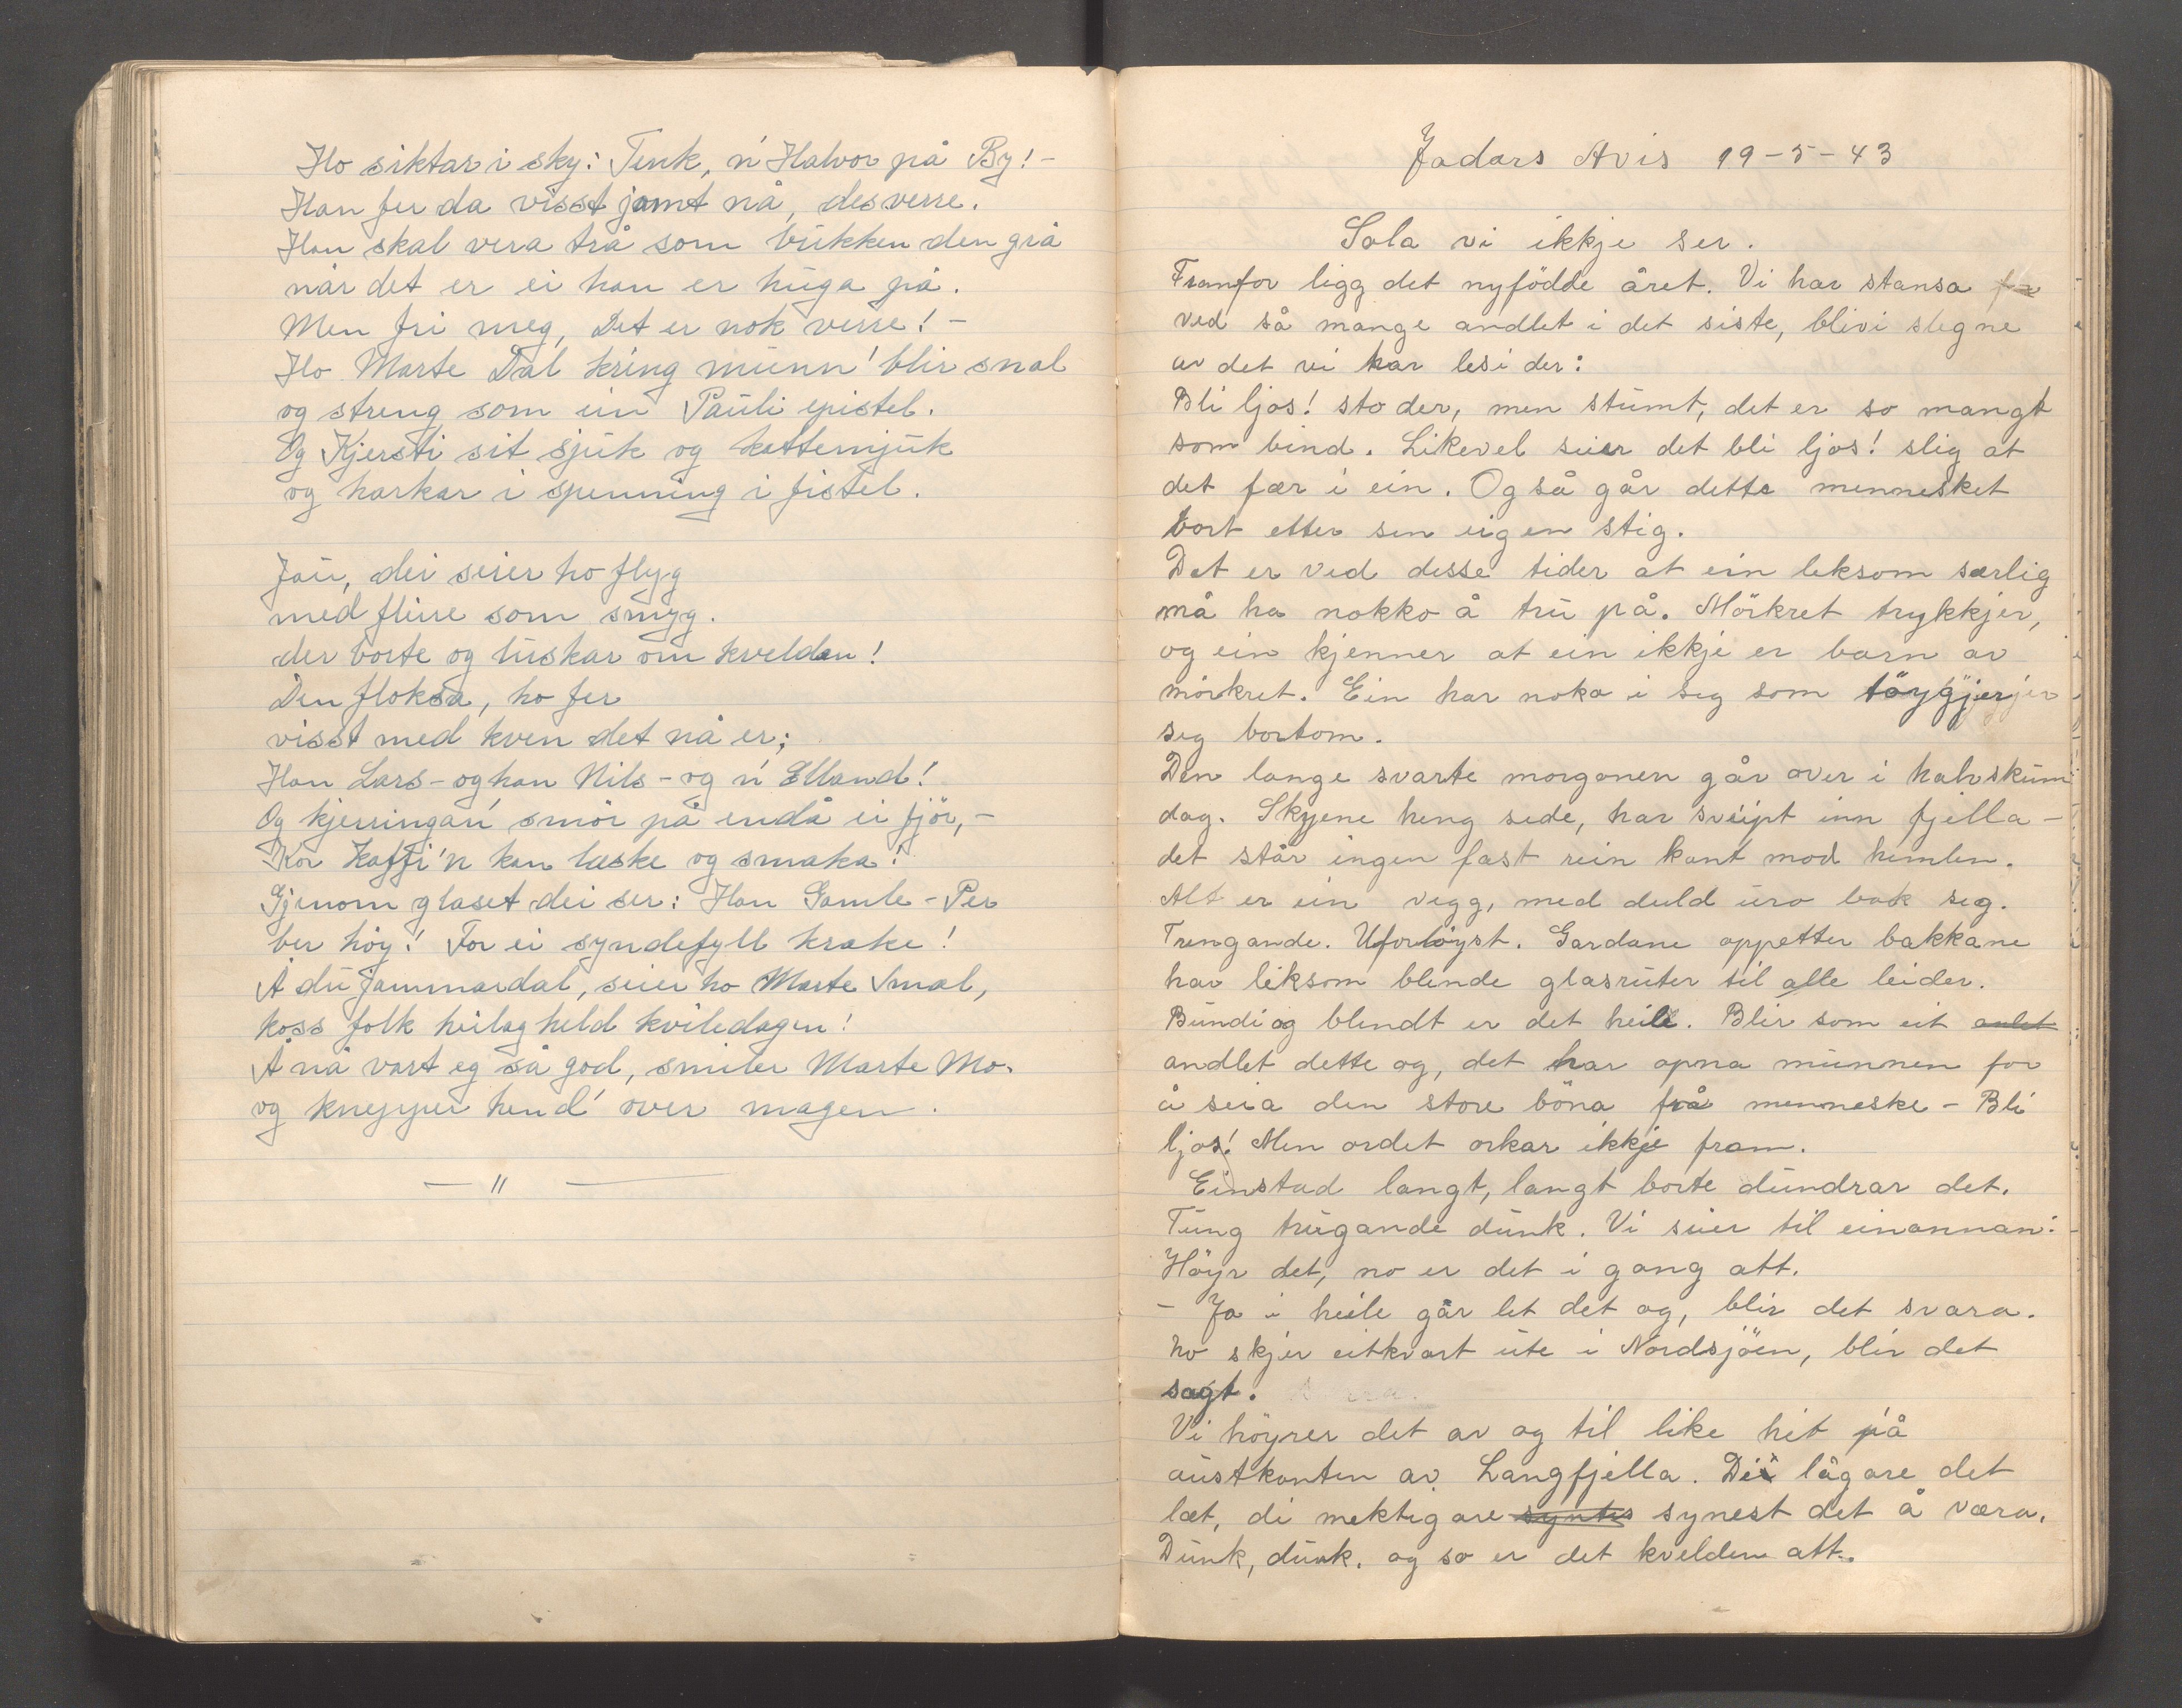 Ho siktar i sky: Tenk, n' Halvor på By! -
Han fer da visst jamt nå, desverre.
Han skal vera trå som bukken den grå
når det er ei han er huga på.
Men fri meg, Det er nok verre! -
Ho Marte Dal kring munn' blir snal
og streng som ein Pauli epistel.
Og Kjersti sit sjuk og kattemjuk
og harkar i spenning i fistel.
Jau, dei seier ho flyg
med flire som smyg.
der borte og tuskar om kvelden!
Den floksa, ho fer
visst med kven det nå er;
Han Lars - og han Nils - og n' Elland!
Og kjerringan' smör på endå ei fjör, -
Kor kaffi'n kan læske og smaka!
Gjenom glaset dei ser: Han Gamle-Per
ber höy! For ei syndefyll kråke!
Å du jammardal, seier ho Marte Smal,
koss folk heilag held kviledagen!
Å nå vart eg så god, smiler Marte Mo.
og knepper hend' over magen.
— " —
Jadars Avis 19-5-43
Sola vi ikkje ser.
Framfor ligg det nyfödde året. Vi har stansa
ved så mange andlet i det siste, blivi slegne
av det vi har lesi der:
Bli ljos! sto der, men stumt, det er so mangt
som bind. Likevel seier det bli ljos! slig at
det fær i ein. Og så går dette mennesket
bort etter sin eigen stig.
Det er ved desse tider at ein leksom særlig
må ha nokko å tru på. Mörkret trykkjer,
og ein kjenner at ein ikkje er barn av
mörkret. Ein har noko i seg som töygjer
seg bortom.
Den lange svarte morgonen går over i halvskum
dag. Skyene heng side, har sveipt inn fjella -
det står ingen fast rein kant mod himlen.
Alt er ein vegg, med duld uro bak seg.
Trengande. Uforlöyst. Gardane oppetter bakkane
har liksom blende glasruter til alle leider.
Bundi og blindt er det heile. Blir som eit anlet
andlet dette og, det har opna munnen for
å seia den store böna frå menneske - Bli
ljos! Men ordet orkar ikkje fram.
Einstad langt, langt borte dundrar det.
Tung trugande dunk. Vi seier til einannan:
Höyr det, no er det i gang att.
- Ja i heile går let det og, blir det svara.
No skjer eitkvart ute i Nordsjöen, blir det
sagt.
Vi höyrer det av og til like hit på
austkanten av Langfjella. Dei lågare det
læt, di mektigare syntes synest det å væra.
Dunk, dunk. og so er det kvelden att.